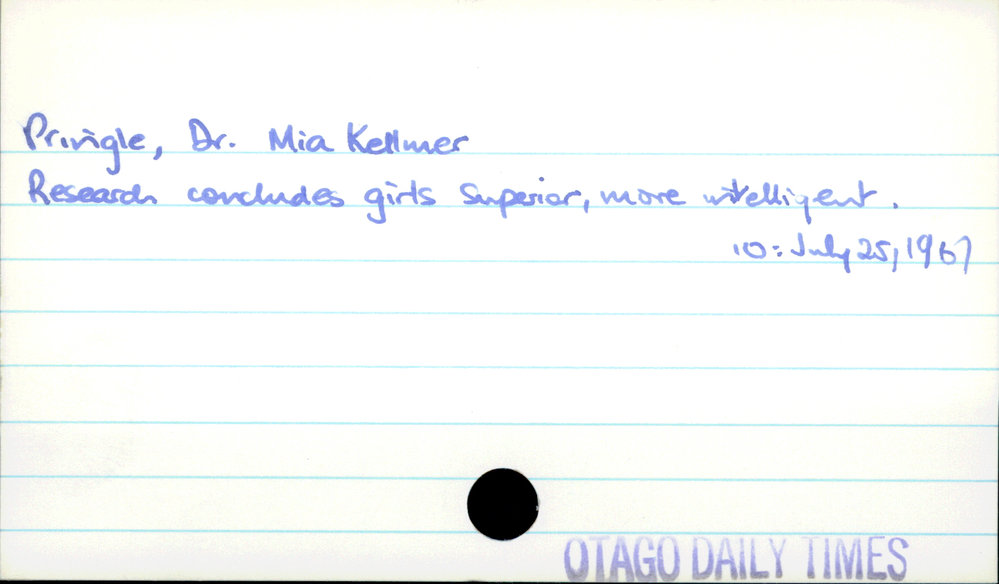 Pringle, Dr. Mia Kellmer
Research concludes girls superior, more intelligent.
10: July 25, 1967
OTAGO DAILY TIMES